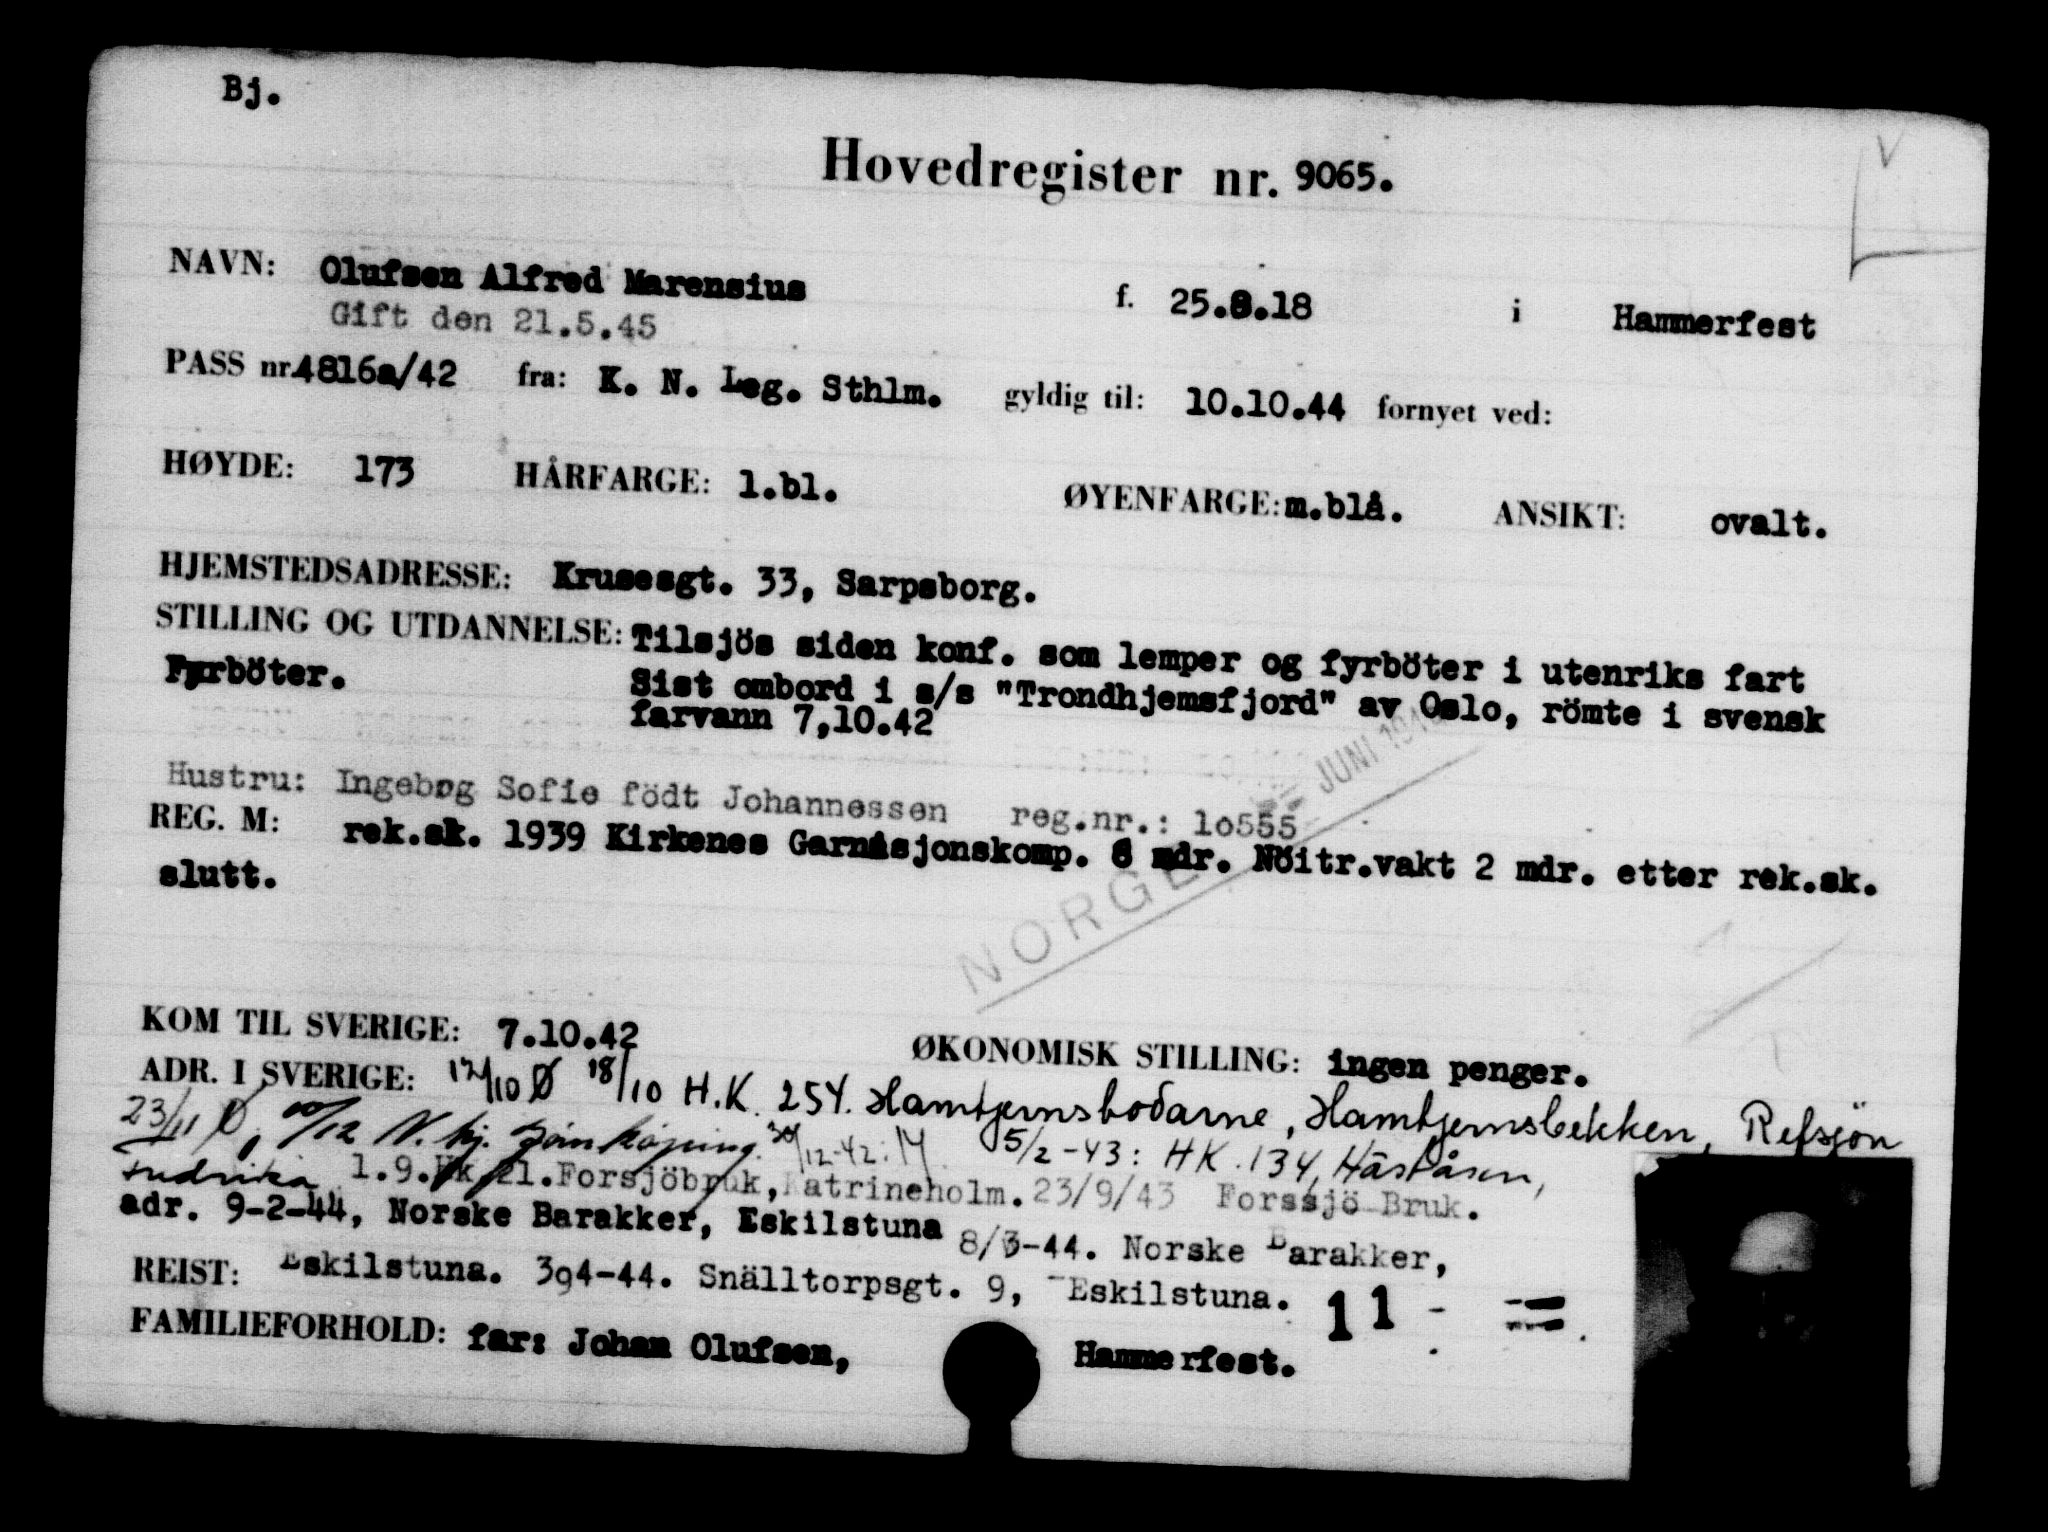 Bj.
Hovedregister nr. 9065.
NAVN: Olufsen Alfred Marensius f. 25.8.18 i Hammerfest
Gift den 21.5.45
PASS nr. 4816a/42 fra: K. N. Leg. Sthlm. gyldig til: 10.10.44 fornyet ved:
HØYDE: 173 HÅRFARGE: l.bl. ØYENFARGE: m.blå. ANSIKT: ovalt.
HJEMSTEDSADRESSE: Krusesgt. 33, Sarpsborg.
STILLING OG UTDANNELSE: Tilsjös siden konf. som lemper og fyrböter i utenriks fart
Fyrböter. Sist ombord i s/s "Trondhjemsfjord" av Oslo, römte i svensk
farvann 7,10.42
JUNI
Hustru: Ingebøg Sofie födt Johannessen reg.nr.: 1o555
REG. M: rek.sk. 1939 Kirkenes Garnisjonskomp. 6 mdr. Nöitr.vakt 2 mdr. etter rek.sk.
slutt.
NORGE
KOM TIL SVERIGE: 7.10.42 ØKONOMISK STILLING: ingen penger.
ADR. I SVERIGE: 12/10 Ø 18/10 H.K. 254. Hamtjernsbodarne, Hamtjernsbekken, Refsjön
23/11 Ø, /12 N. hj. Jönköping. 12-42: 5/2-43: HK. 134, Häståsen,
1.9.Hk 21.Forsjöbruk, Katrineholm. 23/9/43 Forssjö Bruk.
adr. 9-2-44, Norske Barakker, Eskilstuna 8/3-44. Norske Barakker,
REIST: Eskilstuna. 394-44. Snälltorpsgt. 9, Eskilstuna. 11 -
FAMILIEFORHOLD: far: Johan Olufsen, Hammerfest.